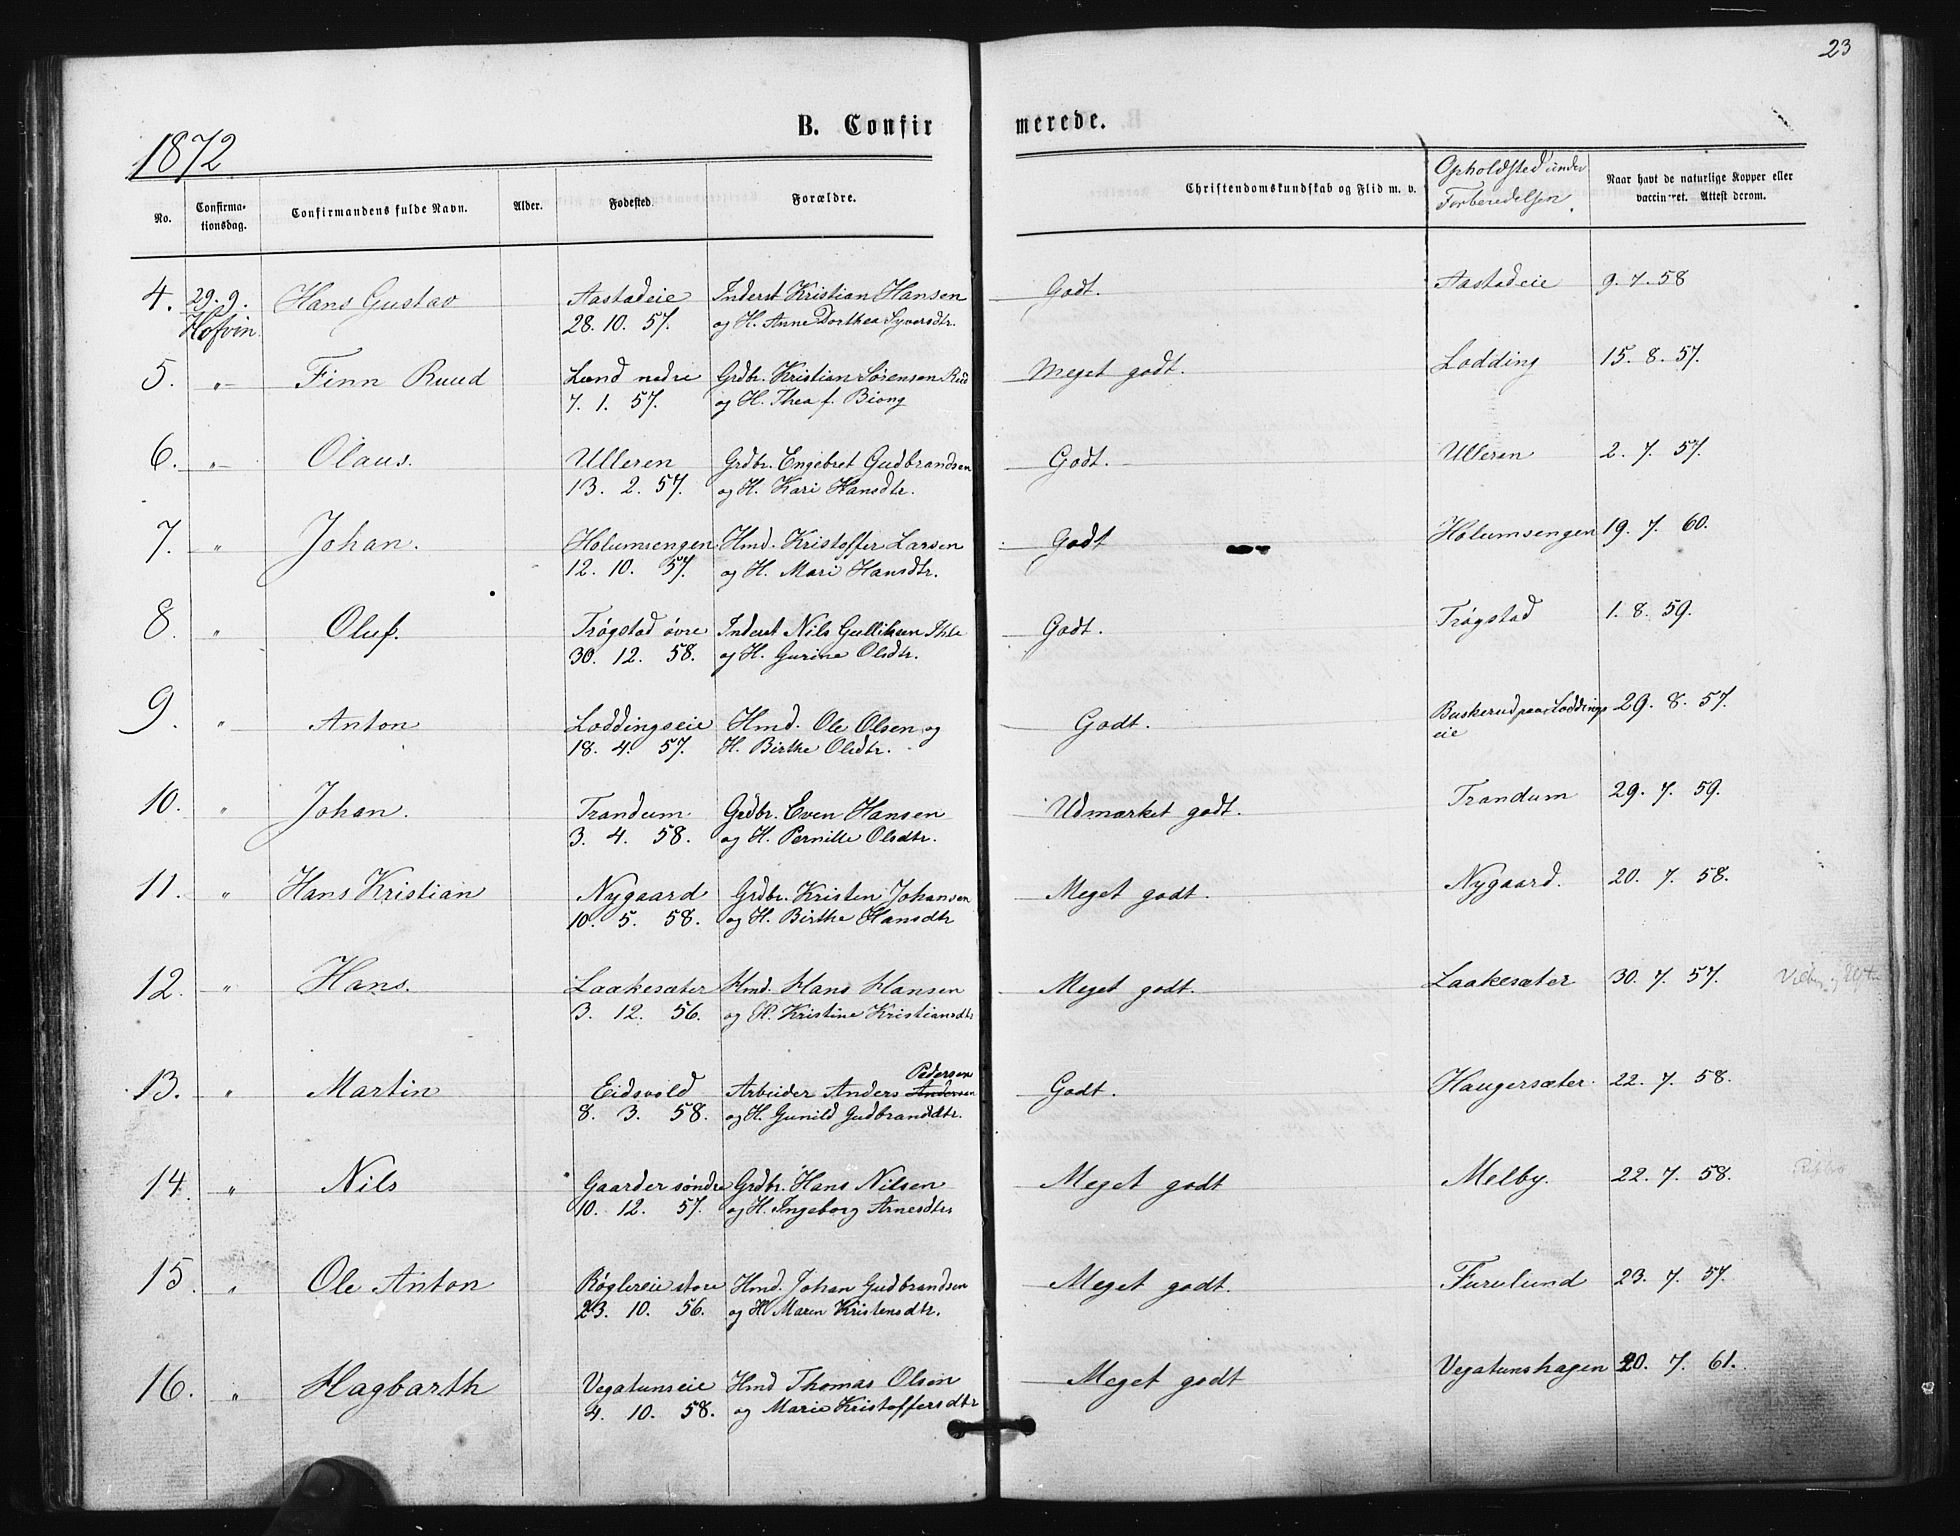 23
1872
B. Confirmerede.
No. | Confirmationsdag. | Confirmandens fulde Navn. | Alder. | Fødested. | Forældre. | Christendomskundskab og Flid m. v. | Opholdsted under Forberedelsen. | Naar havt de naturlige Kopper eller vaccineret. Attest derom.
4. | 29. 9. Hofvin. | Hans Gustav | Aastadeie 28. 10. 57. | Inderst Kristian Hansen og H. Anne Dorthea Syversdtr. | Godt. | Aastadeie | 9. 7. 58
5. | " | Finn Ruud | Lund nedre 7. 1. 57. | Grdbr. Kristian Sørensen Rud og H. Thea f. Biong | Meget godt. | Lodding | 15. 8. 57.
6. | " | Olaus. | Ulleren 13. 2. 57. | Grdbr. Engebret Gudbrandsen og H. Kari Hansdtr. | Godt. | Ulleren | 2. 7. 57.
7. | " | Johan. | Holumsengen 12. 10. 57. | Hmd. Kristoffer Larsen og H. Mari Hansdtr. | Godt | Holumsengen | 19. 7. 60.
8. | " | Oluf. | Trøgstad øvre 30. 12. 58. | Inderst Nils Gulliksen Ihle og H. Gurine Olsdtr. | Godt. | Trøgstad | 1. 8. 59.
9. | " | Anton | Loddingseie 18. 4. 57. | Hmd. Ole Olsen og H. Birthe Olsdtr. | Godt. | Buskerud paa Loddings eie | 29. 8. 57.
10. | " | Johan. | Trandum 3. 4. 58. | Grdbr. Even Hansen og H. Pernille Olsdtr. | Udmærket godt. | Trandum | 29. 7. 59.
11. | " | Hans Kristian | Nygaard 10. 5. 58. | Grdbr. Kristen Johansen og H. Birthe Hansdtr | Meget godt. | Nygaard. | 20. 7. 58.
12. | " | Hans. | Laakesæter 3. 12. 56. | Hmd. Hans Hansen og H. Kristine Kristiansdtr | Meget godt. | Laakesæter | 30. 7. 57.
13. | " | Martin | Eidsvold 8. 3. 58. | Arbeider Anders Andersen Pedersen og H. Gunild Gudbrandsdtr. | Godt. | Haugersæter. | 22. 7. 58.
14. | " | Nils | Gaarder søndre 10. 12. 57. | Grdbr. Hans Nilsen og H. Ingeborg Arnesdtr | Meget godt | Melby. | 22. 7. 58.
15. | " | Ole Anton | Røglereie store 23. 10. 56. | Hmd. Johan Gudbrandsen og H. Maren Kristensdtr. | Meget godt. | Furulund | 23. 7. 57.
16. | " | Hagbarth | Vegatunseie 4. 10. 58. | Hmd Thomas Olsen og Marie Kristoffersdtr | Meget godt | Vegatunshagen | 20. 7. 61.